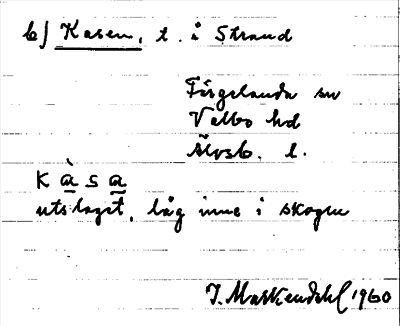 b) Kasen, t. i Strand
Färgelanda sn
Valbo hd
Älvsb. l.
K à s a
utslaget, låg inne i skogen
1960